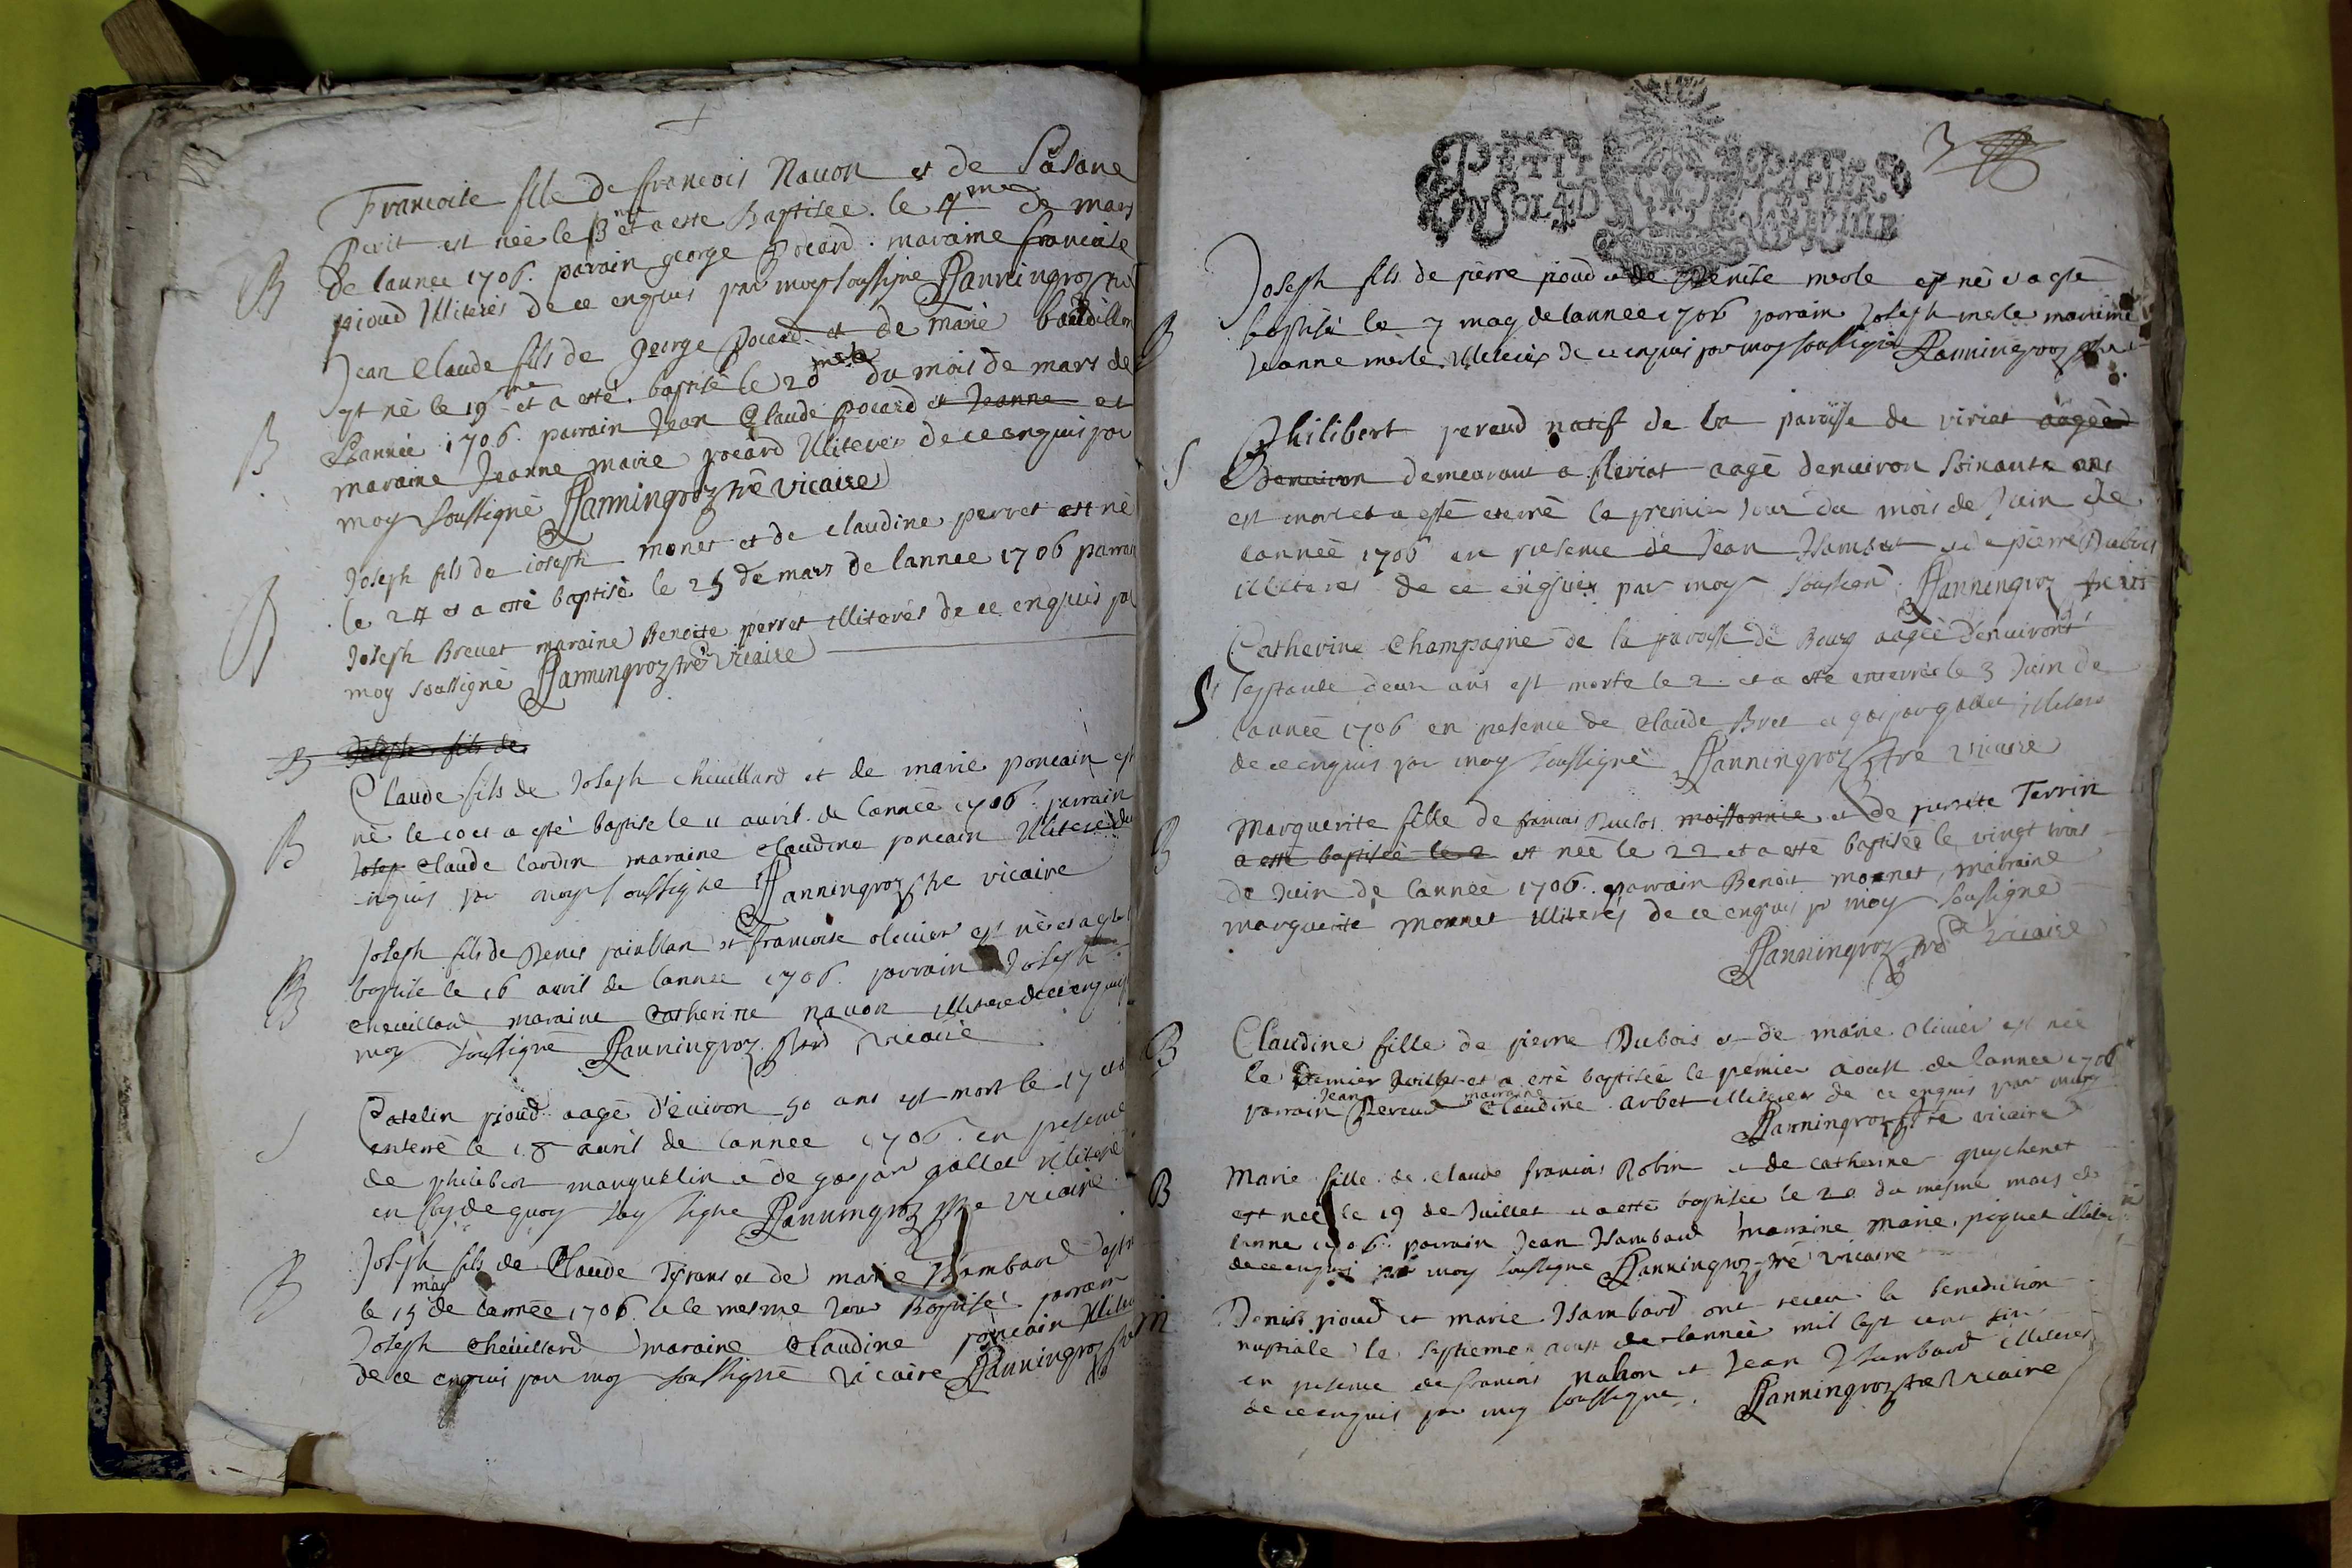 Francoise fille de francois Nauon et de Susane
perit est née le 3 et a esté Baptisée le 4me de mars
B
de lannee 1706. parain george pocard. maraine francoise
pioud Illiterés de ce enquis par moy soussigné Hanningroz ptre
Jean Claude fils de george pocard et de marie
est né le 19me et a esté baptisé le 20 du mois de mars de
B
Lannée 1706. parrain Jean Claude pocard et Jeanne et
maraine Jeanne marie pocard Illiteres de ce enquis par
moy soussigné Hanningroz ptre vicaire
Joseph fils de ioseph monet et de claudine perret est né
le 24 et a esté baptisé le 25 de mars de lannee 1706 parrain
B
Joseph Brevet maraine Benoite perret illiterés de ce enquis par
moy soussigné Hanningroz ptre vicaire
B Joseph fils de
Claude fils de Joseph cheuillard et de marie poncain est
né le 10 et a esté baptise le 11 auril de lannéé 1706. parrain
B
Josep Claude cardin maraine claudine poncain Illiteré de
enquis par moy soussigne Hanningroz ptre vicaire
Joseph fils de Denis painblan et francoise oliuier est né et a esté
B
baptise le 16 auril de lannee 1706. parrain Joseph
cheuillard maraine Catherine nauon illiteré de ce enquis
moy soussigné Hanningroz vicaire
S
Patelin pioud aagé d'enuiron 50 ans est mort le 17 et
enterré le 18 auril de lannee 1706. en presence
de philibert manguelin et de gaspar gallet illiteré
en foy de quoy iay signe Hanningroz ptre vicaire
B
Joseph fils de Claude Tyran et de marie Hambard est né
may
le 15 de lannée 1706 et le mesme iour Baptisé parrain
Joseph cheuillard maraine Claudine poncain Illiteré
de ce enquis par moy soussigné vicaire Hanningroz ptre
3
PETIT PAPIER
UN SOL 4 D LA FEUILLE
Joseph fils de pierre pioud et de Denise merle est né et a esté
B
baptisé le 7 may de lannee 1706 parrain Joseph merle maraine
Jeanne merle Illiteréz de ce enquis par moy soussigné Hanningroz ptre
Philibert peraud natif de la paroisse de viriat aagée
S
denuiron demeurant a fleriat aagé denuiron soixante ans
est mort et a esté eterré le premier Jour du mois de Juin de
lannéé 1706 en presence de Jean Hambert et de pierre Dubois
illiteres de ce enquis par moy soussigné Hanningroz ptre vic
Catherine Champagne de la paroisse de Bourg aagéé d'enuiron
S
septante deux ans est morte le 2 et a eté enterrée le 3 Juin de
lannéé 1706 en presence de Claude Bret et gaspar gallet illitere
de ce enquis par moy soussigné Hanningroz ptre vicaire
Marguerite fille de francois Duclos moissonnie et de pierrete Terrin
B
a esté baptiséé le 2 est néé le 22 et a esté baptiséé le vingt trois
de Juin de lannéé 1706. parrain Benoit monnet, mairaine
marguerite Monnet illiterés de ce enquis pr moy soussigné
Hanningroz ptre vicaire
B
Claudine fille de pierre Dubois et de marie oliuier est née
le Dernier Juillet et a esté baptiséé le pemier aoust de lannee 1706
Jean marraine
parrain Peraud Claudine arbet illiteres de ce enquis par moy
Hanningroz ptre vicaire
Marie fille de claude francois Robin et de catherine guychenet
B
est néé le 19 de Juillet et a esté baptisée le 20 du mesme mois de
lanne 1706. parrain Jean Hambard marraine marie piquet illiter
de ce enquis par moy soussigne Hanningroz ptre vicaire
M
Denis pioud et marie Hambard ont receu la benediction
nuptiale le septieme aoust de lannéé mil sept cent six
en presence de francois nahon et Jean Hambard illiteres
de ce enquis par moy soussigne. Hanningroz ptre vicaire